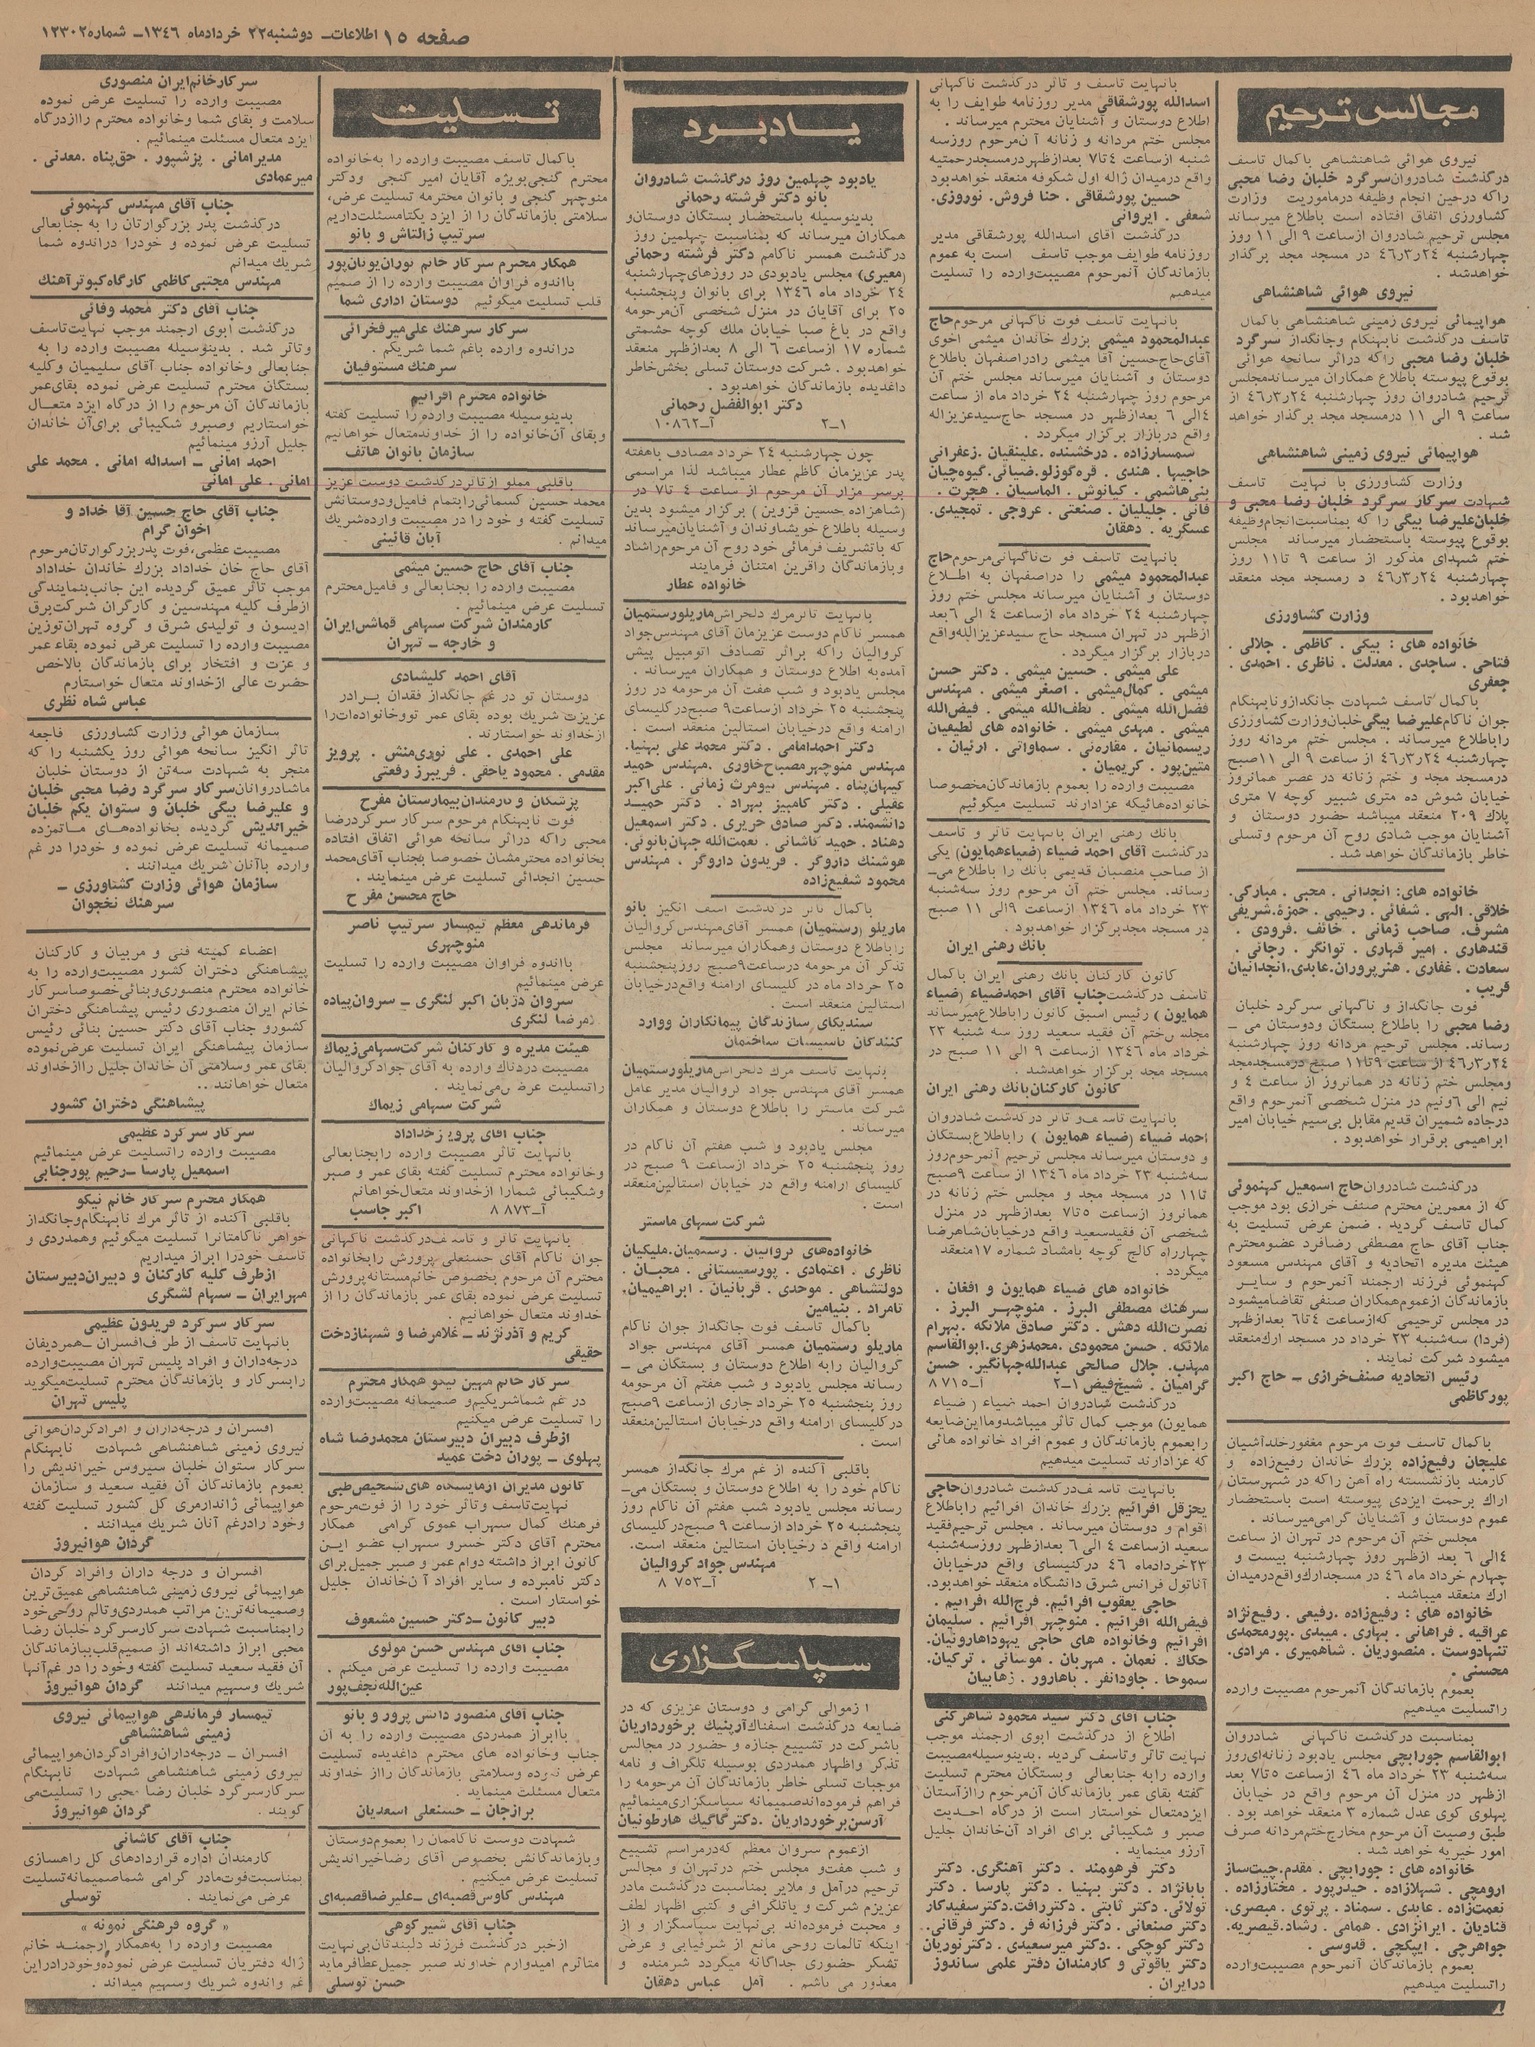 صفحه ۱۵ اطلاعات- دوشنبه ۲۲ خردادماه ۱۳۴۶- شماره ۱۲۳۰۲
مجالس ترحیم
نیروی هوائی شاهنشاهی باکمال تاسف
درگذشت شادروان سرگرد خلبان رضا محبی
راکه درحین انجام وظیفه درماموریت وزارت
کشاورزی اتفاق افتاده است باطلاع میرساند
مجلس ترحیم شادروان ازساعت ۹ الی ۱۱ روز
چهارشنبه ۴۶ر۳ر۲۴ در مسجد مجد برگذار
خواهدشد .
نیروی هوائی شاهنشاهی
هواپیمائی نیروی زمینی شاهنشاهی باکمال
تاسف درگذشت نابهنگام وجانگداز سرگرد
خلبان رضا محبی راکه دراثر سانحه هوائی
بوقوع پیوسته باطلاع همکاران میرساندمجلس
ترحیم شادروان روز چهارشنبه ۴۶ر۳ر۲۴ از
ساعت ۹ الی ۱۱ درمسجد مجد برگذار خواهد
شد .
هواپیمائی نیروی زمینی شاهنشاهی
وزارت کشاورزی با نهایت تاسف
شهادت سرکار سرگرد خلبان رضا محبی و
خلبان علیرضا بیگی را که بمناسبت انجام وظیفه
بوقوع پیوسته باستحضار میرساند مجلس
ختم شهدای مذکور از ساعت ۹ تا۱۱ روز
چهارشنبه ۴۶ر۳ر۲۴ در مسجد مجد منعقد
خواهدبود .
وزارت کشاورزی
خانواده های : بیگی . کاظمی . جلالی .
فتاحی . ساجدی . معدلت . ناظری . احمدی .
جعفری
باکمال تاسف شهادت جانگدازونابهنگام
جوان ناکام علیرضا بیگی خلبان وزارت کشاورزی
راباطلاع میرساند . مجلس ختم مردانه روز
چهارشنبه ۴۶ر۳ر۲۴ از ساعت ۹ الی ۱۱صبح
درمسجد مجد و ختم زنانه در عصر همانروز
خیابان شوش ده متری شبیر کوچه ۷ متری
پلاک ۲۰۹ منعقد میباشد حضور دوستان و
آشنایان موجب شادی روح آن مرحوم وتسلی
خاطر بازماندگان خواهد شد .
خانواده های: انجدانی . محبی . مبارکی.
خلاقی. الهی . شفائی . رحیمی . حمزه. شریفی
مشرف. صاحب زمانی . خائف . فرودی .
قندهاری . امیر قهاری . توانگر . رجائی .
سعادت . غفاری . هنرپروران. عابدی. انجدانیان
قریب .
فوت جانگداز و ناگهانی سرگرد خلبان
رضا محبی را باطلاع بستگان ودوستان می ـ
رساند. مجلس ترحیم مردانه روز چهارشنبه
۴۶ر۳ر۲۴ از ساعت ۹تا۱۱ صبح درمسجدمجد
ومجلس ختم زنانه در همانروز از ساعت ۴ و
نیم الی ۶ونیم در منزل شخصی آنمرحوم واقع
درجاده شمیران قدیم مقابل بی‌سیم خیابان امیر
ابراهیمی برقرار خواهدبود .
درگذشت شادروان حاج اسمعیل کهنموئی
که از معمرین محترم صنف خرازی بود موجب
کمال تاسف گردید . ضمن عرض تسلیت به
جناب آقای حاج مصطفی رضافرد عضومحترم
هیئت مدیره اتحادیه و آقای مهندس مسعود
کهنموئی فرزند ارجمند آنمرحوم و سایر
بازماندگان ازعموم همکاران صنفی تقاضامیشود
در مجلس ترحیمی که ازساعت ۴ تا۶ بعدازظهر
(فردا) سه‌شنبه ۲۳ خرداد در مسجد ارك منعقد
میشود شرکت نمایند .
رئیس اتحادیه صنف خرازی ـ حاج اکبر
پورکاظمی
باکمال تاسف فوت مرحوم مغفورخلدآشیان
علیجان رفیع‌زاده بزرک خاندان رفیع‌زاده و
کارمند بازنشسته راه آهن راکه در شهرستان
اراك برحمت ایزدی پیوسته است باستحضار
عموم دوستان و آشنایان گرامی میرساند .
مجلس ختم آن مرحوم در تهران از ساعت
۴الی ۶ بعد ازظهر روز چهارشنبه بیست و
چهارم خرداد ماه ۴۶ در مسجدارك واقع درمیدان
ارك منعقد میباشد .
خانواده های : رفیع‌زاده .رفیعی . رفیع‌نژاد
عراقیه . فراهانی . بهاری . میبدی . پورمحمدی
تنهادوست . منصوریان . شاهمیری . مرادی .
محسنی .
بعموم بازماندگان آنمرحوم مصیبت وارده
راتسلیت میدهیم
بمناسبت درگذشت ناگهانی شادروان
ابوالقاسم جورابچی مجلس یادبود زنانه‌ای‌روز
سه‌شنبه ۲۳ خرداد ماه ۴۶ ازساعت ۵تا۷ بعد
ازظهر در منزل آن مرحوم واقع در خیابان
پهلوی کوی عدل شماره ۳ منعقد خواهد بود .
طبق وصیت آن مرحوم مخارج ختم مردانه صرف
امور خیریه خواهد شد .
خانواده های : جورابچی . مقدم. چیت‌ساز
ارومچی . شهلازاده . حیدرپور . مختارزاده .
نعمت‌زاده . عابدی . سمناد . پرتوی . مبصری.
قنادیان . ایرانزادی . همامی . رشاد. قیصریه.
جواهرچی . ایپکچی . قدوسی .
بعموم بازماندگان آنمرحوم مصیبت‌وارده
راتسلیت میدهیم
بانهایت تاسف و تاثر درگذشت ناگهانی
اسدالله پورشقاقی مدیر روزنامه طوایف را به
اطلاع دوستان و آشنایان محترم میرساند .
مجلس ختم مردانه و زنانه آن‌مرحوم روزسه
شنبه ازساعت ۴تا۷ بعدازظهر درمسجدرحمتیه
واقع درمیدان ژاله اول شکوفه منعقد خواهدبود
حسین پورشقاقی . حنا فروش. نوروزی.
شعفی . ایروانی
درگذشت آقای اسدالله پورشقاقی مدیر
روزنامه طوایف موجب تاسف است به عموم
بازماندگان آنمرحوم مصیبت‌وارده را تسلیت
میدهیم
بانهایت تاسف فوت ناگهانی مرحوم حاج
عبدالمحمود میثمی بزرك خاندان میثمی اخوی
آقای حاج حسین آقا میثمی رادراصفهان باطلاع
دوستان و آشنایان میرساند مجلس ختم آن
مرحوم روز چهارشنبه ۲۴ خرداد ماه از ساعت
۴الی ۶ بعدازظهر در مسجد حاج سیدعزیزاله
واقع دربازار برگزار میگردد .
شمسارزاده . درخشنده . علینقیان . زعفرانی
حاجیها . هندی . قره‌گوزلو. ضیائی. گیوه‌چیان
بنی‌هاشمی . کیانوش . الماسیان . هجرت .
فانی . جلیلیان . صنعتی . عروجی . تمجیدی.
عسگریه . دهقان
بانهایت تاسف فوت ناگهانی مرحوم حاج
عبدالمحمود میثمی را دراصفهان به اطلاع
دوستان و آشنایان میرساند مجلس ختم روز
چهارشنبه ۲۴ خرداد ماه از ساعت ۴ الی ۶بعد
ازظهر در تهران مسجد حاج سیدعزیزالله واقع
دربازار برگزار میگردد .
علی میثمی . حسین میثمی . دکتر حسن
میثمی . کمال میثمی . اصغر میثمی . مهندس
فضل‌الله میثمی . لطف‌الله میثمی . فیض‌الله
میثمی . مهدی میثمی . خانواده های لطیفیان
ریسمانیان . مقاره‌ئی . سماواتی . ارئیان .
متین‌پور . کریمیان .
مصیبت وارده را بعموم بازماندگان مخصوصا
خانواده‌هائیکه عزادارند تسلیت میگوئیم
بانك رهنی ایران بانهایت تاثر و تاسف
درگذشت آقای احمد ضیاء (ضیاءهمایون) یکی
از صاحب منصبان قدیمی بانك را باطلاع می‌ـ
رساند. مجلس ختم آن مرحوم روز سه‌شنبه
۲۳ خرداد ماه ۱۳۴۶ ازساعت ۹الی ۱۱ صبح
در مسجد مجدبرگزار خواهدبود .
بانك رهنی ایران
کانون کارکنان بانك رهنی ایران باکمال
تاسف درگذشت جناب آقای احمدضیاء (ضیاء
همایون ) رئیس اسبق کانون راباطلاع میرساند
مجلس ختم آن فقید سعید روز سه شنبه ۲۳
خرداد ماه ۱۳۴۶ ازساعت ۹ الی ۱۱ صبح در
مسجد مجد برگزار خواهدشد .
کانون کارکنان بانك رهنی ایران
بانهایت تاسف و تاثر درگذشت شادروان
احمد ضیاء (ضیاء همایون ) راباطلاع بستگان
و دوستان میرساند مجلس ترحیم آنمرحوم روز
سه‌شنبه ۲۳ خرداد ماه ۱۳۴۶ از ساعت ۹صبح
تا۱۱ در مسجد مجد و مجلس ختم زنانه در
همانروز ازساعت ۵ تا۷ بعدازظهر در منزل
شخصی آن فقیدسعید واقع درخیابان شاهرضا
چهارراه کالج کوچه بامشاد شماره ۱۷منعقد
میگردد .
خانواده های ضیاء همایون و افغان .
سرهنك مصطفی البرز . منوچهر البرز .
نصرت‌الله دهش . دکتر صادق ملائکه .بهرام
ملائکه . حسن محمودی . محمدزهری. ابوالقاسم
مهذب. جلال صالحی عبدالله جهانگیر. حسن
گرامیان . شیخ‌فیض ۱ـ۲ آـ۸۷۱۵
درگذشت شادروان احمد ضیاء ( ضیاء
همایون) موجب کمال تاثر میباشدومااین‌ضایعه
رابعموم بازماندگان و عموم افراد خانواده هائی
که عزادارند تسلیت میدهیم
بانهایت تاسف درگذشت شادروان حاجی
یحزقل افرائیم بزرك خاندان افرائیم راباطلاع
اقوام و دوستان میرساند . مجلس ترحیم فقید
سعید ازساعت ۴ الی ۶ بعدازظهر روزسه‌شنبه
۲۳خردادماه ۴۶ درکنیسای واقع درخیابان
آناتول فرانس شرق دانشگاه منعقد خواهدبود.
حاجی یعقوب افرائیم. فرج‌الله افرائیم .
فیض‌الله افرائیم . منوچهر افرائیم . سلیمان
افرائیم وخانواده های حاجی یهوداهارونیان.
حکاك . نعمان . مهربان . موسائی . ترکیان.
سموحا . جاودانفر . باهارور . زهابیان
جناب آقای دکتر سید محمود شاهرکنی
اطلاع از درگذشت ابوی ارجمند موجب
نهایت تاثر وتاسف گردید .بدینوسیله‌مصیبت
وارده رابه جنابعالی وبستگان محترم تسلیت
گفته بقای عمر بازماندگان آن مرحوم را ازآستان
ایزدمتعال خواستار است از درگاه احدیت
صبر و شکیبائی برای افراد آن‌خاندان جلیل
آرزو مینماید .
دکتر فرهومند . دکتر آهنگری. دکتر
بابانژاد . دکتر بهنیا . دکتر پارسا . دکتر
تولائی. دکتر ثابتی . دکتر رافت. دکتر سفیدکار
دکتر صنعانی . دکتر فرزانه فر . دکتر فرقانی.
دکتر کوچکی . .دکتر میرسعیدی . دکتر نوریان
دکتر یاقوتی و کارمندان دفتر علمی ساندوز
درایران .
یادبود
یادبود چهلمین روز درگذشت شادروان
بانو دکتر فرشته رحمانی
بدینوسیله باستحضار بستگان دوستان و
همکاران میرساند که بمناسبت چهلمین روز
درگذشت همسر ناکامم دکتر فرشته رحمانی
(معیری) مجلس یادبودی در روزهای چهارشنبه
۲۴ خرداد ماه ۱۳۴۶ برای بانوان وپنجشنبه
۲۵ برای آقایان در منزل شخصی آن‌مرحومه
واقع در باغ صبا خیابان ملك کوچه حشمتی
شماره ۱۷ ازساعت ۶ الی ۸ بعدازظهر منعقد
خواهدبود . شرکت دوستان تسلی بخش‌خاطر
داغدیده بازماندگان خواهدبود .
دکتر ابوالفضل رحمانی
۱ـ۲ آـ۱۰۸۶۲
چون چهارشنبه ۲۴ خرداد مصادف باهفته
پدر عزیزمان کاظم عطار میباشد لذا مراسمی
برسر مزار آن مرحوم از ساعت ۴ تا۷ در
(شاهزاده حسین قزوین ) برگزار میشود بدین
وسیله باطلاع خویشاوندان و آشنایان میرساند
که باتشریف فرمائی خود روح آن مرحوم راشاد
وبازماندگان راقرین امتنان فرمایند
خانواده عطار
بانهایت تاثر مرك دلخراش ماریلورستمیان
همسر ناکام دوست عزیزمان آقای مهندس‌جواد
کروالیان راکه براثر تصادف اتومبیل پیش
آمده‌به اطلاع دوستان و همکاران میرساند .
مجلس یادبود و شب هفت آن مرحومه در روز
پنجشنبه ۲۵ خرداد ازساعت ۹ صبح‌درکلیسای
ارامنه واقع درخیابان استالین منعقد است .
دکتر احمدامامی . دکتر محمد علی بهنیا.
مهندس منوچهرمصباح‌خاوری .مهندس حمید
کیهان‌پناه . مهندس کیومرث زمانی . علی‌اکبر
عقیلی . دکتر کامبیز بهراد . دکتر حمید
دانشمند. دکتر صادق حریری . دکتر اسمعیل
دهناد . حمید کاشانی . نعمت‌الله جهان‌بانوئی.
هوشنك داروگر . فریدون داروگر . مهندس
محمود شفیع‌زاده
باکمال تاثر درگذشت اسف انگیز بانو
ماریلو (رستمیان) همسر آقای‌مهندس کروالیان
راباطلاع دوستان وهمکاران میرساند مجلس
تذکر آن مرحومه درساعت ۹صبح روزپنجشنبه
۲۵ خرداد ماه در کلیسای ارامنه واقع درخیابان
استالین منعقد است .
سندیکای سازندگان پیمانکاران ووارد
کنندگان تاسیسات ساختمان
بنهایت تاسف مرك دلخراش ماریلورستمیان
همسر آقای مهندس جواد کروالیان مدیر عامل
شرکت ماستر را باطلاع دوستان و همکاران
میرساند .
مجلس یادبود و شب هفتم آن ناکام در
روز پنجشنبه ۲۵ خرداد ازساعت ۹ صبح در
کلیسای ارامنه واقع در خیابان استالین‌منعقد
است .
شرکت سهامی ماستر
خانواده‌های کروالیان . رستمیان. ملیکیان
ناظری . اعتمادی . پورسیستانی . محبان .
دولتشاهی . موحدی . قربانیان . ابراهیمیان.
نامراد . بنیامین
باکمال تاسف فوت جانگداز جوان ناکام
ماریلو رستمیان همسر آقای مهندس جواد
گروالیان رابه اطلاع دوستان و بستگان می ـ
رساند مجلس یادبود و شب هفتم آن مرحومه
روز پنجشنبه ۲۵ خرداد جاری ازساعت ۹صبح
درکلیسای ارامنه واقع درخیابان استالین‌منعقد
است .
باقلبی آکنده از غم مرك جانگداز همسر
ناکام خود را به اطلاع دوستان و بستگان می‌ـ
رساند مجلس یادبود شب هفتم آن ناکام روز
پنجشنبه ۲۵ خرداد از ساعت ۹ صبح‌درکلیسای
ارامنه واقع درخیابان استالین منعقد است.
مهندس جواد کروالیان
۱ـ ۲ آـ۸۷۵۳
سپاسگزاری
ازموالی گرامی و دوستان عزیزی که در
ضایعه درگذشت اسفناك آرپنیك برخورداریان
باشرکت در تشییع جنازه و حضور در مجالس
تذکر واظهار همدردی بوسیله تلگراف و نامه
موجبات تسلی خاطر بازماندگان آن مرحومه را
فراهم فرموده‌اندصمیمانه سپاسگزاری مینمائیم
آرسن برخورداریان .دکتر گاگیك هارطونیان
ازعموم سروران معظم که درمراسم تشییع
و شب هفت‌و مجلس ختم درتهران و مجالس
ترحیم درآمل و ملایر بمناسبت درگذشت مادر
عزیزم شرکت و یاتلگرافی و کتبی اظهار لطف
و محبت فرموده‌اند بی‌نهایت سپاسگزار و از
اینکه تالمات روحی مانع از شرفیابی و عرض
تشکر حضوری جداگانه میگردد شرمنده و
معذور می باشم . آمل عباس دهقان
تسلیت
باکمال تاسف مصیبت وارده را به‌خانواده
محترم گنجی‌بویژه آقایان امیر گنجی ودکتر
منوچهر گنجی و بانوان محترمه تسلیت عرض،
سلامتی بازماندگان را از ایزد یکتامسئلت‌داریم
سرتیپ زالتاش و بانو
همکار محترم سرکار خانم توران پویان‌پور
بااندوه فراوان مصیبت وارده را از صمیم
قلب تسلیت میگوئیم دوستان اداری شما
سرکار سرهنك علی میرفخرائی
دراندوه وارده باغم شما شریکم .
سرهنك مستوفیان
خانواده محترم افرائیم
بدینوسیله مصیبت وارده را تسلیت گفته
وبقای آن‌خانواده را از خداوندمتعال خواهانیم
سازمان بانوان هاتف
باقلبی مملو ازتاثردرگذشت دوست عزیز
محمد حسین کسمائی رابتمام فامیل‌ودوستانش
تسلیت گفته و خود را در مصیبت وارده‌شریك
میدانم . آبان قائینی
جناب آقای حاج حسین میثمی
مصیبت وارده را بجنابعالی و فامیل‌محترم
تسلیت عرض مینمائیم .
کارمندان شرکت سهامی قماش‌ایران
و خارجه ـ تهران
آقای احمد کلیشادی
دوستان تو در غم جانگداز فقدان برادر
عزیزت شریك بوده بقای عمر تووخانواده‌ات‌را
ازخداوند خواستارند .
علی احمدی . علی نوری‌منش . پرویز
مقدمی . محمود یاحقی . فریبرز رفعتی
پزشکان و کارمندان بیمارستان مفرح
فوت نابهنگام مرحوم سرکار سرگردرضا
محبی راکه دراثر سانحه هوائی اتفاق افتاده
بخانواده محترمشان خصوصا بجناب آقای‌محمد
حسین انجدانی تسلیت عرض مینمایند .
حاج محسن مفرح
فرماندهی معظم تیمسار سرتیپ ناصر
منوچهری
بااندوه فراوان مصیبت وارده را تسلیت
عرض مینمائیم
سروان دژبان اکبر لنگری ـ سروان‌پیاده
رضا لنگری
هیئت مدیره و کارکنان شرکت‌سهامی‌زیماك
مصیبت دردناك وارده به آقای جوادکروالیان
راتسلیت عرض می‌نمایند .
شرکت سهامی زیماك
جناب آقای پرویز خداداد
بانهایت تاثر مصیبت وارده رابجنابعالی
وخانواده محترم تسلیت گفته بقای عمر و صبر
وشکیبائی شمارا ازخداوند متعال‌خواهانم
آـ۸۸۷۳ اکبر جاسب
بانهایت تاثر و تاسف درگذشت ناگهانی
جوان ناکام آقای حسنعلی پرورش رابخانواده
محترم آن مرحوم بخصوص خانم‌مستانه‌پرورش
تسلیت عرض نموده بقای عمر بازماندگان را از
خداوند متعال خواهانیم .
کریم و آذرنژند ـ غلامرضا و شهنازدخت
حقیقی
سرکار خانم مهین نیکو همکار محترم
در غم شماشریکیم‌و صمیمانه مصیبت‌وارده
را تسلیت عرض میکنیم
ازطرف دبیران دبیرستان محمدرضا شاه
پهلوی ـ پوران دخت عمید
کانون مدیران آزمایشگاه های تشخیص‌طبی
نهایت‌تاسف وتاثر خود را از فوت‌مرحوم
فرهنك کمال سهراب عموی گرامی همکار
محترم آقای دکتر خسرو سهراب عضو این
کانون ابراز داشته دوام عمر و صبر جمیل‌برای
دکتر نامبرده و سایر افراد آن‌خاندان جلیل
خواستار است .
دبیر کانون ـ دکتر حسین مشعوف
جناب آقای مهندس حسن مولوی
مصیبت وارده را تسلیت عرض میکنم .
عین‌الله نجف‌پور
جناب آقای منصور دانش پرور و بانو
باابراز همدردی مصیبت وارده را به آن
جناب وخانواده های محترم داغدیده تسلیت
عرض نموده وسلامتی بازماندگان رااز خداوند
متعال مسئلت مینماید .
برازجان ـ حسنعلی اسعدیان
شهادت دوست ناکاممان را بعموم‌دوستان
وبازماندگانش بخصوص آقای رضاخیراندیش
تسلیت عرض میکنیم .
مهندس کاوس قصبه‌ای ـ علیرضا قصبه‌ای
جناب آقای شیرکوهی
ازخبر درگذشت فرزند دلبندتان بی‌نهایت
متاثرم امیدوارم خداوند صبر جمیل‌عطافرماید
حسن توسلی
سرکارخانم ایران منصوری
مصیبت وارده را تسلیت عرض نموده
سلامت و بقای شما وخانواده محترم راازدرگاه
ایزد متعال مسئلت مینمائیم .
مدیرامانی . پزشپور . حق‌پناه .معدنی .
میرعمادی
جناب آقای مهندس کهنموئی
درگذشت پدر بزرگوارتان را به جنابعالی
تسلیت عرض نموده و خودرا دراندوه شما
شریك میدانم
مهندس مجتبی‌کاظمی کارگاه‌کبوترآهنك
جناب آقای دکتر محمد وفائی
درگذشت ابوی ارجمند موجب نهایت‌تاسف
وتاثر شد . بدینوسیله مصیبت وارده را به
جنابعالی وخانواده جناب آقای سلیمیان وکلیه
بستگان محترم تسلیت عرض نموده بقای‌عمر
بازماندگان آن مرحوم را از درگاه ایزد متعال
خواستاریم وصبرو شکیبائی برای‌آن خاندان
جلیل آرزو مینمائیم
احمد امانی ـ اسداله امانی . محمد علی
امانی . علی امانی
جناب آقای حاج حسین آقا خداد و
اخوان گرام
مصیبت عظمی،فوت پدربزرگوارتان‌مرحوم
آقای حاج خان خداداد بزرك خاندان خداداد
موجب تاثر عمیق گردیده این جانب‌بنمایندگی
ازطرف کلیه مهندسین و کارگران شرکت‌برق
ادیسون و تولیدی شرق و گروه تهران‌توزین
مصیبت وارده را تسلیت عرض نموده بقاء‌عمر
و عزت و افتخار برای بازماندگان بالاخص
حضرت عالی ازخداوند متعال خواستارم
عباس شاه نظری
سازمان هوائی وزارت کشاورزی فاجعه
تاثر انگیز سانحه هوائی روز یکشنبه را که
منجر به شهادت سه‌تن از دوستان خلبان
ماشادروانان سرکار سرگرد رضا محبی خلبان
و علیرضا بیگی خلبان و ستوان یکم خلبان
خیراندیش گردیده بخانواده‌های ماتمزده
صمیمانه تسلیت عرض نموده و خودرا در غم
وارده باآنان شریك میدانند .
سازمان هوائی وزارت کشاورزی ـ
سرهنك نخجوان
اعضاء کمیته فنی و مربیان و کارکنان
پیشاهنگی دختران کشور مصیبت‌وارده را به
خانواده محترم منصوری‌وبنائی‌خصوصاسرکار
خانم ایران منصوری رئیس پیشاهنگی دختران
کشورو جناب آقای دکتر حسین بنائی رئیس
سازمان پیشاهنگی ایران تسلیت عرض‌نموده
بقای عمر وسلامتی آن خاندان جلیل راازخداوند
متعال خواهانند..
پیشاهنگی دختران کشور
سرکار سرگرد عظیمی
مصیبت وارده راتسلیت عرض مینمائیم
اسمعیل پارسا ـ رحیم پورجنابی
همکار محترم سرکار خانم نیکو
باقلبی آکنده از تاثر مرك نابهنگام‌وجانگداز
خواهر ناکامتانرا تسلیت میگوئیم وهمدردی و
تاسف خودرا ابراز میداریم
ازطرف کلیه کارکنان و دبیران‌دبیرستان
مهرایران ـ سهام لشگری
سرکار سرگرد فریدون عظیمی
بانهایت تاسف از طرف افسران ـ همردیفان
درجه‌داران و افراد پلیس تهران مصیبت‌وارده
رابسرکار و بازماندگان محترم تسلیت‌میگوید
پلیس تهران
افسران و درجه‌داران و افراد گردان‌هوائی
نیروی زمینی شاهنشاهی شهادت نابهنگام
سرکار ستوان خلبان سیروس خیراندیش را
بعموم بازماندگان آن فقید سعید و سازمان
هواپیمائی ژاندارمری کل کشور تسلیت گفته
وخود رادرغم آنان شریك میدانند .
گردان هوانیروز
افسران و درجه داران وافراد گردان
هواپیمائی نیروی زمینی شاهنشاهی عمیق‌ترین
وصمیمانه‌ترین مراتب همدردی‌وتالم روحی‌خود
رابمناسبت شهادت سرکارسرگرد خلبان رضا
محبی ابراز داشته‌اند از صمیم‌قلب‌ببازماندگان
آن فقید سعید تسلیت گفته وخود را در غم‌آنها
شریك وسهیم میدانند گردان هوانیروز
تیمسار فرماندهی هواپیمائی نیروی
زمینی شاهنشاهی
افسران ـ درجه‌داران‌وافرادگردان‌هواپیمائی
نیروی زمینی شاهنشاهی شهادت نابهنگام
سرکارسرگرد خلبان رضا محبی را تسلیت‌می
گویند . گردان هوانیروز
جناب آقای کاشانی
کارمندان اداره قراردادهای کل راهسازی
بمناسبت‌فوت‌مادر گرامی شماصمیمانه‌تسلیت
عرض می‌نمایند . توسلی
« گروه فرهنگی نمونه »
مصیبت وارده را به‌همکار ارجمند خانم
ژاله دفتریان تسلیت عرض نموده‌وخودرادراین
غم واندوه شریك وسهیم میداند .